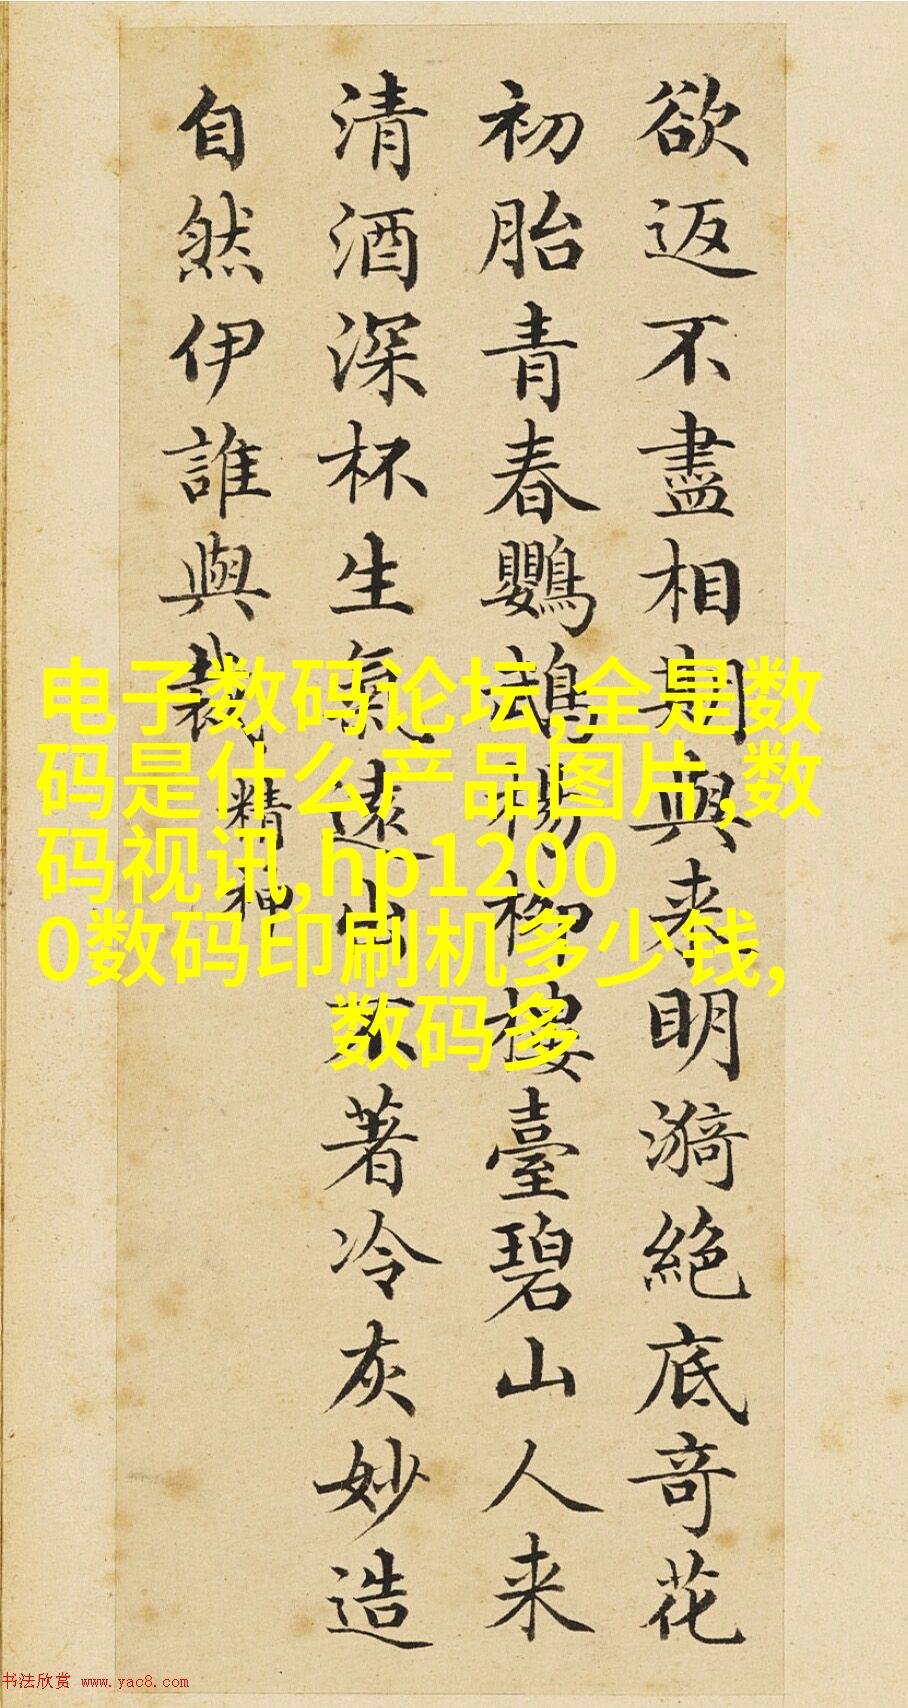 欲返不盡相期與来明漪絕底奇花
初胎青春鸚鵡楊柳樓臺碧山人来
清酒深杯生氣遠出不著冷灰妙造
自然伊誰與裁
精神
电子数码论坛,全是数
码是什么产品图片,数
码视讯,hp1200
0数码印刷机多少钱,
数码多
书法欣赏 www.yac8.com